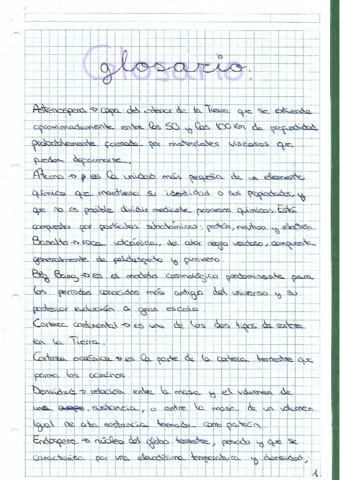 glosario.
Astenosfera → capa del interior de la Tierra que se extiende
aproximadamente entre los 50 y los 100 Km de profundidad
posiblemente formada por materiales viscosos que
pueden deformarse.
Átomo → es la unidad más pequeña de un elemento
químico que mantiene su identidad o sus propiedades, y
que no es posible dividir mediante procesos químicos. Está
compuesto por partículas subatómicas: protón, neutrón y electrón.
Basalto → roca volcánica, de color negro verdoso, compuesta
generalmente de feldespato y piroxeno
Big Bang → es el modelo cosmológico predominante para
los periodos conocidos más antiguos del universo y su
posterior evolución a gran escala
Corteza continental → es uno de los dos tipos de corteza
en la Tierra.
Corteza oceánica → es la parte de la corteza terrestre que
forma los océanos.
Densidad → relación entre la masa y el volumen de
una sustancia, o entre la masa de un volumen
igual de otra sustancia tomada como patrón.
Endosfera → núcleo del globo terrestre, pesado y que se
caracteriza por una elevadísima temperatura y densidad,
1.